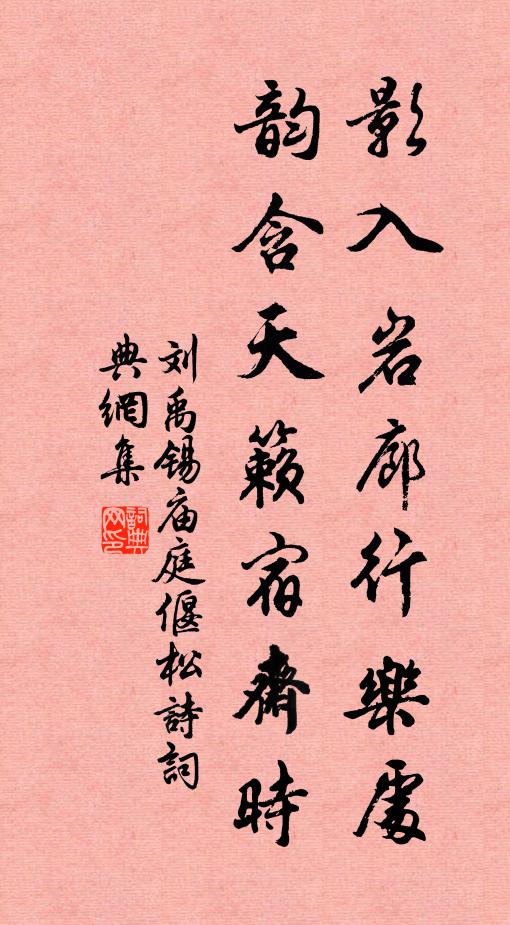 影入岩廊行樂處
韵含天籟宿齋時
刘禹锡庙庭偃松詩詞
典網集
詞典
网印